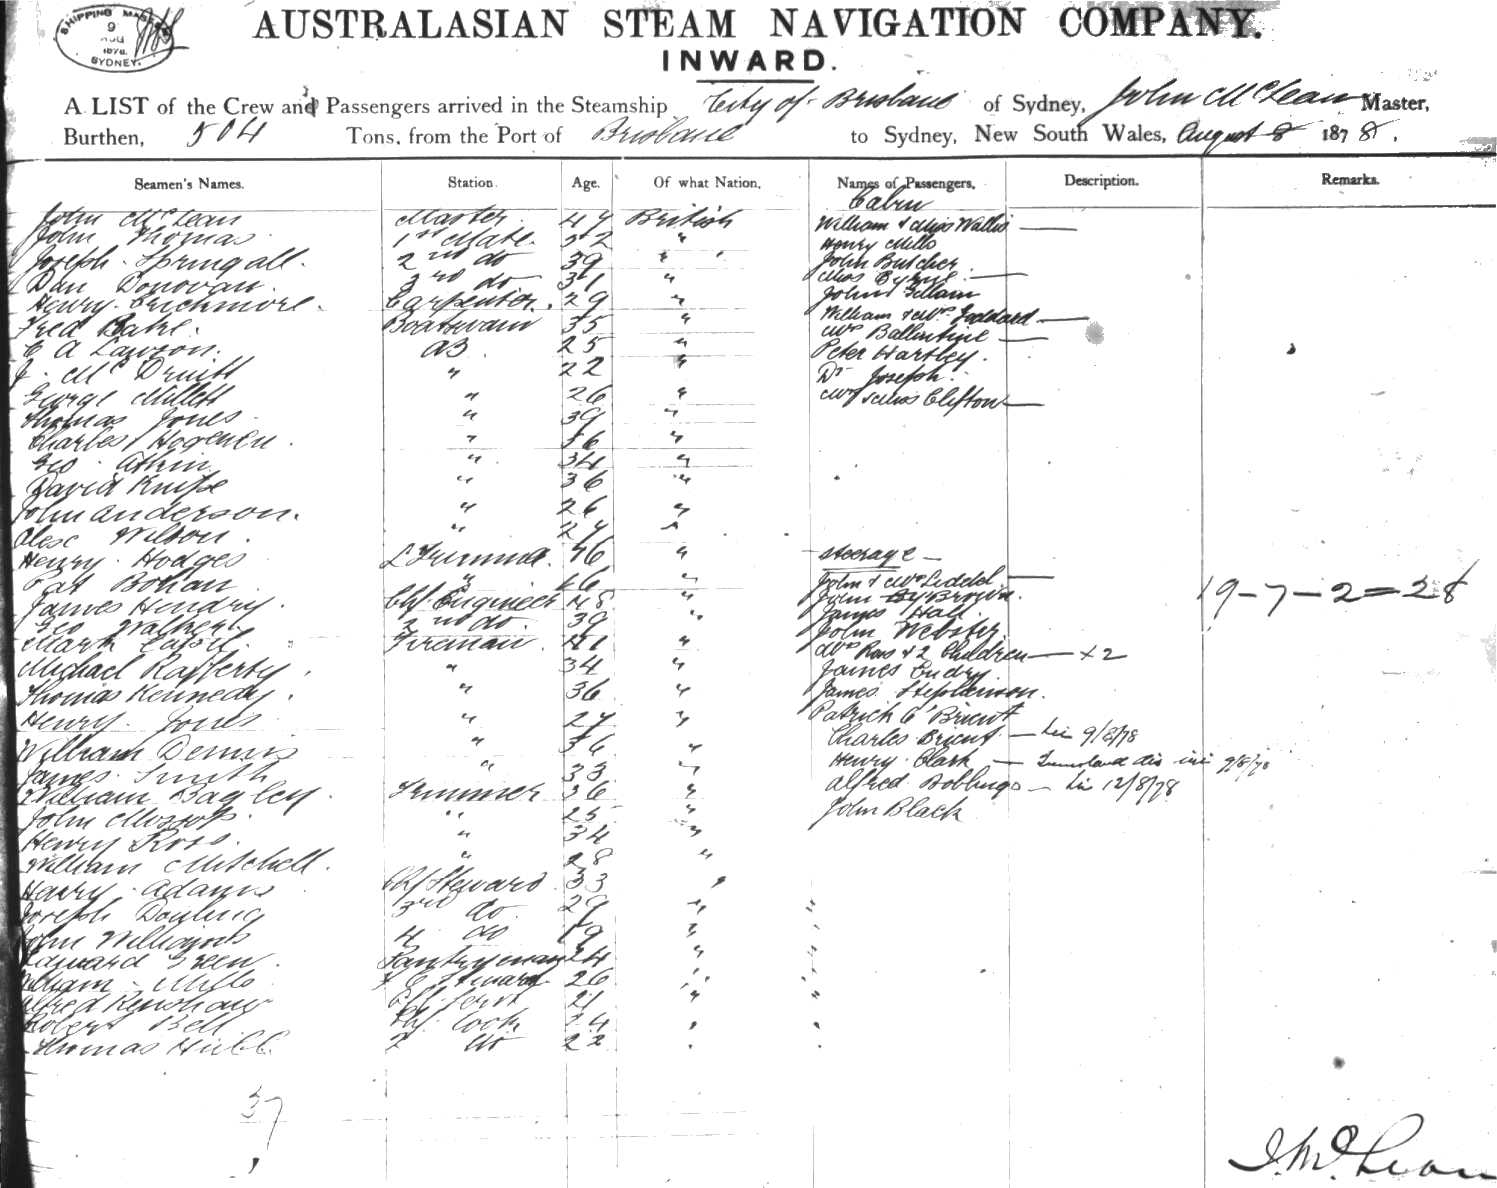 SHIPPING MASTER
9
1878
SYDNEY.
AUSTRALASIAN STEAM NAVIGATION COMPANY.
INWARD.
A LIST of the Crew and Passengers arrived in the Steamship City of Brisbane of Sydney, John McLean Master,
Burthen, 504 Tons, from the Port of Brisbane to Sydney, New South Wales, August 8 1878.
Seamen's Names. Station. Age. Of what Nation. Names of Passengers, Description. Remarks.
Cabin
John McLean Master 47 British William & Miss Wallis
John Thomas 1st Mate 32 " Henry Mills
Joseph Springall. 2nd do 39 " John Butcher.
Dan Donovan. 3rd do 31 " Miss Byrne
Henry. 29 " John Gillam
Carpenter.
Fred Boatswain 35 " William & Mrs Goddard
C A Lawson. AB 25 " Mrs Ballantine
J. McDruitt " 22 " Peter Hartley.
George Millett " 26 " Dr Joseph.
Thomas Jones " 39 " Mrs & Miss Clifton
Charles " "
Geo. Atkin " 34 "
David Knipe " 36 "
John Anderson. " 26 "
Alex Wilson. " 27 "
Henry Hodges 46 " Steerage
Pat Bohan " " John & Mrs Liddel
James Hendry. Chf. Engineer 48 " John Brown. 19-7-2=28
Geo Walker. 2nd do. 39 " James Hall
Mark Fireman 41 " John Webster.
Michael Rafferty " 34 " Mrs Ross & 2 Children +2
Thomas Kennedy. " 36 " James
Henry. Jones " 27 " James Stephenson.
William Dennis " 36 " Patrick O'Brient
James Smith " 33 " Charles Brient 9/8/78
William Bagley. Trimmer 36 " Henry Clark 9/8/78
John " 25 " Alfred 12/8/78
Henry Ross. " 34 " John Black
William Mitchell. " 28 "
Henry Adams Chf Steward 33 "
Joseph Dowling 3rd do. 29 "
John 4 do 19 "
Edward Green. Pantryman 24 "
William Mills Steward 26 "
Alfred Renshaw 21 "
Robert Bell Chf. Cook 24 "
Thomas 2 do 22 "
37
J. McLean